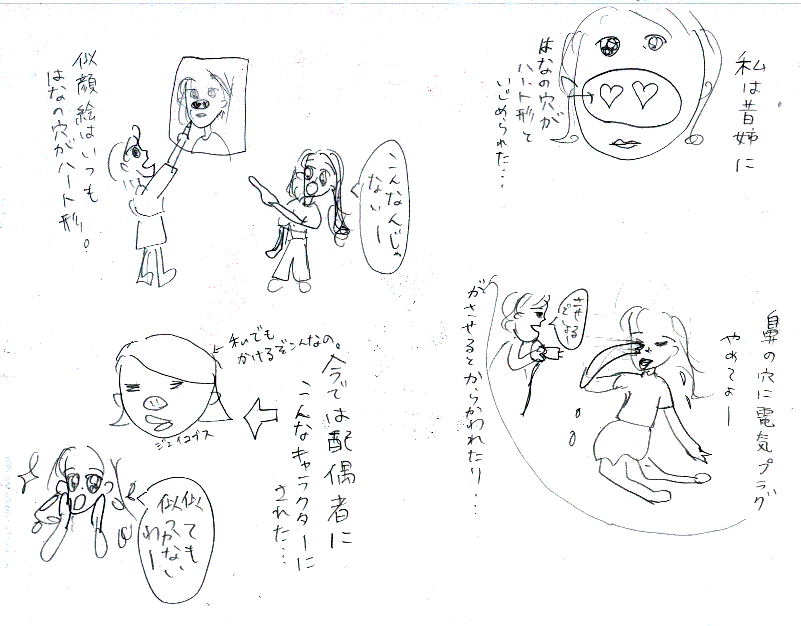 私は昔姉に
はなの穴が
ハート形と
いじめられた…
似顔絵はいつも
はなの穴がハート形。
こんなんじゃ
ないー
鼻の穴に電気プラグ
やめてよー
させる
どしょ!
がさせるとからかわれたり…
今では配偶者に
こんなキャラクターに
された…
私でも
かけるぞこんなの。
ジェイコブス
似ても
似つかない
わー